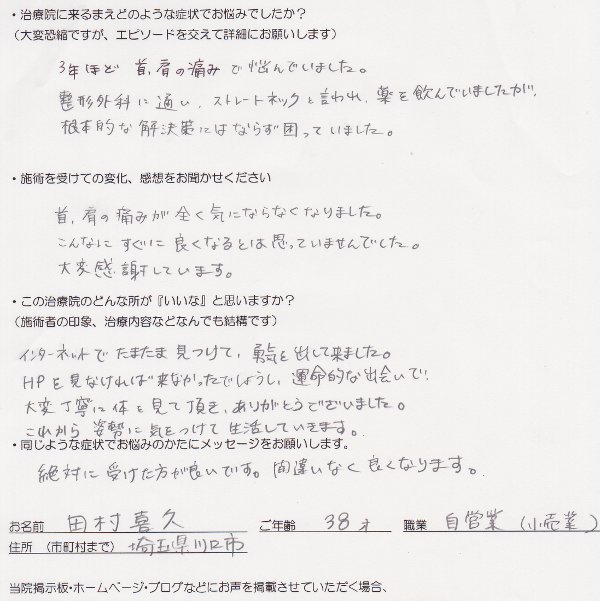 ・治療院に来るまえどのような症状でお悩みでしたか？
（大変恐縮ですが、エピソードを交えて詳細にお願いします）
3年ほど 首,肩の痛みで悩んでいました。
整形外科に通い,ストレートネックと言われ,薬を飲んでいましたが,
根本的な解決策にはならず困っていました。
・施術を受けての変化、感想をお聞かせください
首,肩の痛みが全く気にならなくなりました。
こんなにすぐに良くなるとは思っていませんでした。
大変感謝しています。
・この治療院のどんな所が『いいな』と思いますか？
（施術者の印象、治療内容などなんでも結構です）
インターネットでたまたま見つけて,勇気を出して来ました。
HPを見なければ来なかったでしょうし,運命的な出会いで,
大変丁寧に体を見て頂き,ありがとうございました。
これから姿勢に気をつけて生活していきます。
・同じような症状でお悩みのかたにメッセージをお願いします。
絶対に受けた方が良いです。間違いなく良くなります。
お名前 田村喜久 ご年齢 38才 職業 自営業(小売業)
住所 （市町村まで） 埼玉県川口市
当院掲示板・ホームページ・ブログなどにお声を掲載させていただく場合、